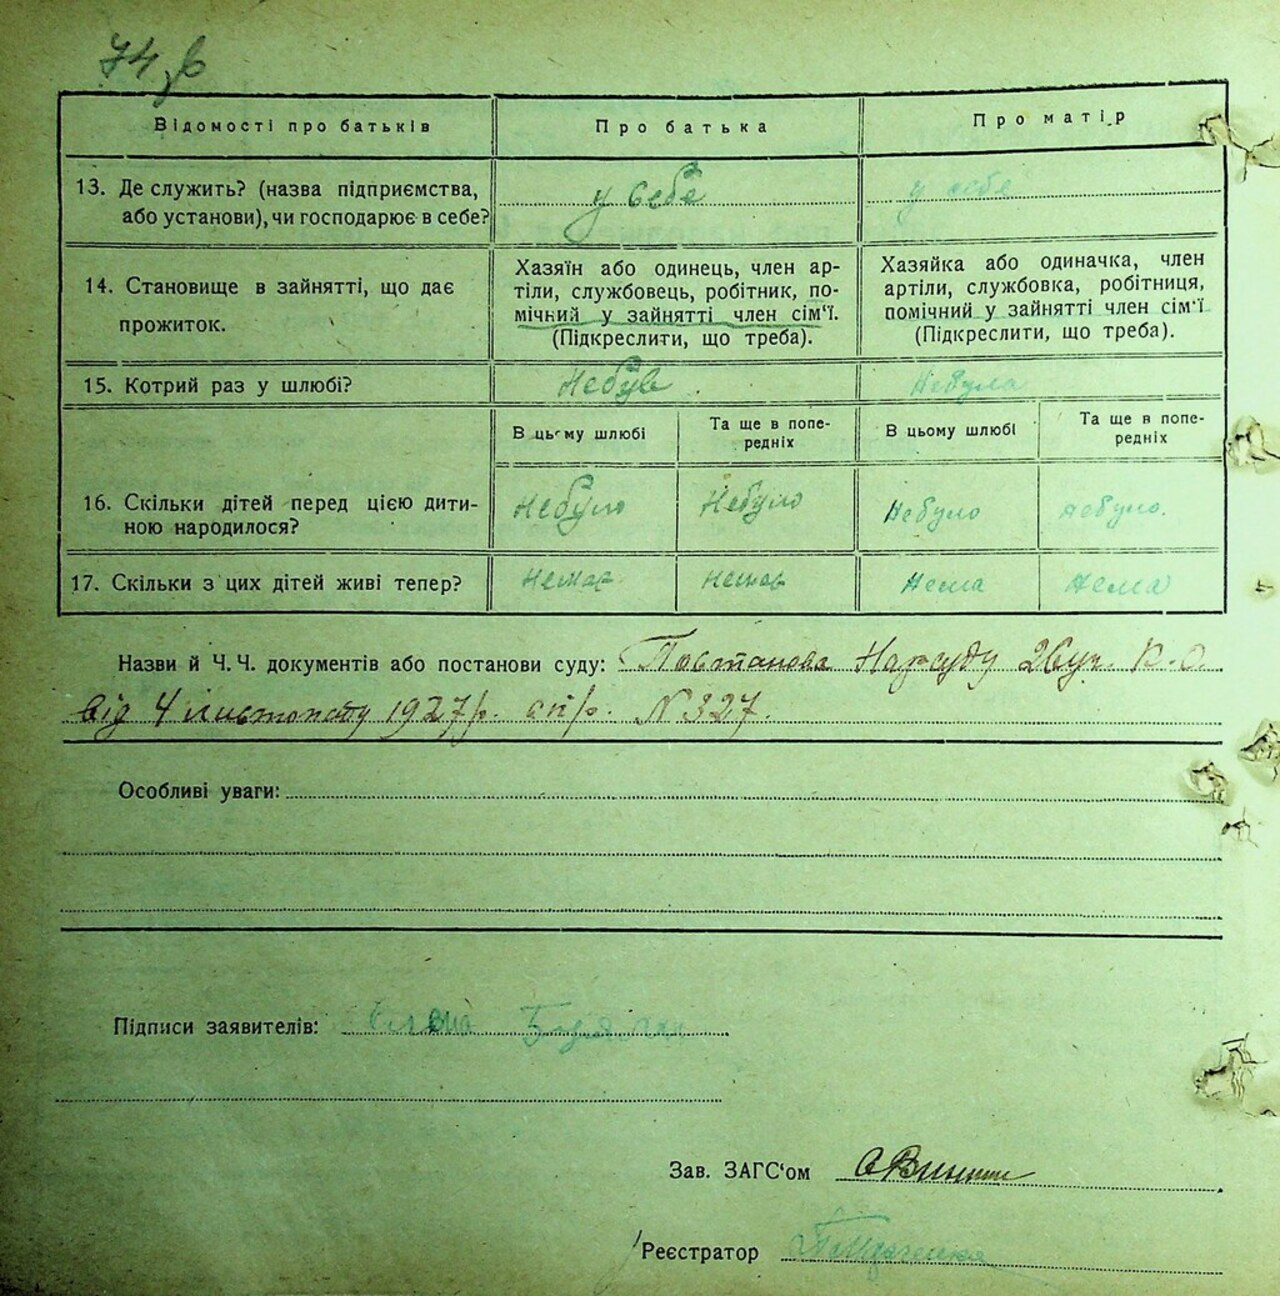 74 зв
Відомості про батьків
Про батька
Про матір
13. Де служить? (назва підприємства,
або установи), чи господарює в себе?
у себе
у себе
14. Становище в зайнятті, що дає
прожиток.
Хазяїн або одинець, член ар-
тіли, службовець, робітник, по-
мічний у зайнятті член сім'ї.
(Підкреслити, що треба).
Хазяйка або одиначка, член
артіли, службовка, робітниця,
помічний у зайнятті член сім'ї
(Підкреслити, що треба).
15. Котрий раз у шлюбі?
Небув
Небула
В цьому шлюбі
Та ще в попе-
редніх
В цьому шлюбі
Та ще в попе-
редніх
16. Скільки дітей перед цією дити-
ною народилося?
Небуло
Небуло
Небуло
небуло.
17. Скільки з цих дітей живі тепер?
Немає
Немає
Нема
Нема
Назви й Ч. Ч. документів або постанови суду: Постанова Нарсуду 26уч. К.О.
від 4 листопаду 1927р. спр. N 327.
Особливі уваги:
Підписи заявителів:
Зав. ЗАГС'ом
Реєстратор